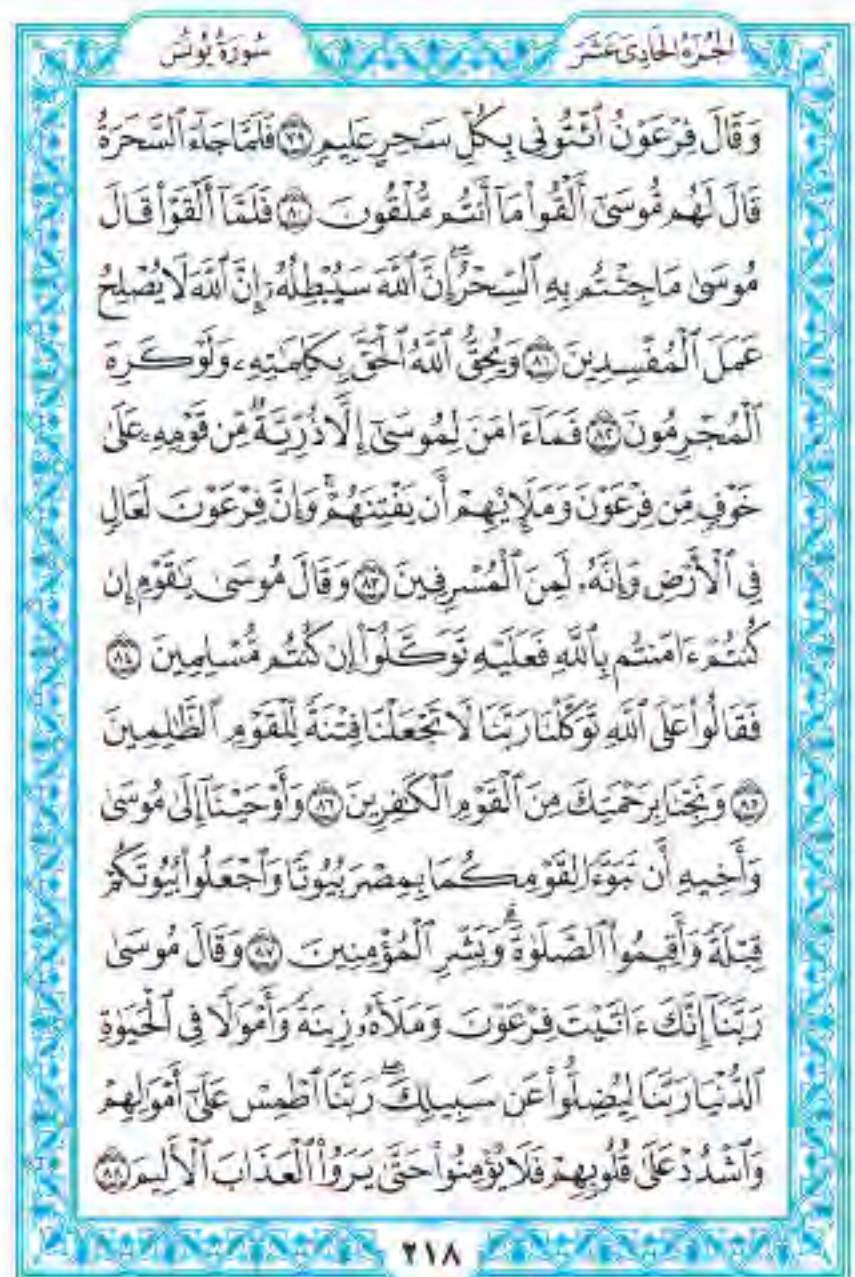 الجُزْءُ الحَادِي عَشَرَ
سُورَةُ يُونُس
وَقَالَ فِرْعَوْنُ ٱئْتُونِى بِكُلِّ سَـٰحِرٍ عَلِيمٍ ۝٧٩ فَلَمَّا جَآءَ ٱلسَّحَرَةُ
قَالَ لَهُم مُّوسَىٰٓ أَلْقُوا۟ مَآ أَنتُم مُّلْقُونَ ۝٨٠ فَلَمَّآ أَلْقَوْا۟ قَالَ
مُوسَىٰ مَا جِئْتُم بِهِ ٱلسِّحْرُ ۖ إِنَّ ٱللَّهَ سَيُبْطِلُهُۥٓ إِنَّ ٱللَّهَ لَا يُصْلِحُ
عَمَلَ ٱلْمُفْسِدِينَ ۝٨١ وَيُحِقُّ ٱللَّهُ ٱلْحَقَّ بِكَلِمَـٰتِهِۦ وَلَوْ كَرِهَ
ٱلْمُجْرِمُونَ ۝٨٢ فَمَآ ءَامَنَ لِمُوسَىٰٓ إِلَّا ذُرِّيَّةٌ مِّن قَوْمِهِۦ عَلَىٰ
خَوْفٍ مِّن فِرْعَوْنَ وَمَلَإِي۟هِمْ أَن يَفْتِنَهُمْ ۚ وَإِنَّ فِرْعَوْنَ لَعَالٍ
فِى ٱلْأَرْضِ وَإِنَّهُۥ لَمِنَ ٱلْمُسْرِفِينَ ۝٨٣ وَقَالَ مُوسَىٰ يَـٰقَوْمِ إِن
كُنتُمْ ءَامَنتُم بِٱللَّهِ فَعَلَيْهِ تَوَكَّلُوٓا۟ إِن كُنتُم مُّسْلِمِينَ ۝٨٤
فَقَالُوا۟ عَلَى ٱللَّهِ تَوَكَّلْنَا رَبَّنَا لَا تَجْعَلْنَا فِتْنَةً لِّلْقَوْمِ ٱلظَّـٰلِمِينَ
۝٨٥ وَنَجِّنَا بِرَحْمَتِكَ مِنَ ٱلْقَوْمِ ٱلْكَـٰفِرِينَ ۝٨٦ وَأَوْحَيْنَآ إِلَىٰ مُوسَىٰ
وَأَخِيهِ أَن تَبَوَّءَا لِقَوْمِكُمَا بِمِصْرَ بُيُوتًا وَٱجْعَلُوا۟ بُيُوتَكُمْ
قِبْلَةً وَأَقِيمُوا۟ ٱلصَّلَوٰةَ ۗ وَبَشِّرِ ٱلْمُؤْمِنِينَ ۝٨٧ وَقَالَ مُوسَىٰ
رَبَّنَآ إِنَّكَ ءَاتَيْتَ فِرْعَوْنَ وَمَلَأَهُۥ زِينَةً وَأَمْوَٰلًا فِى ٱلْحَيَوٰةِ
ٱلدُّنْيَا رَبَّنَا لِيُضِلُّوا۟ عَن سَبِيلِكَ ۖ رَبَّنَا ٱطْمِسْ عَلَىٰٓ أَمْوَٰلِهِمْ
وَٱشْدُدْ عَلَىٰ قُلُوبِهِمْ فَلَا يُؤْمِنُوا۟ حَتَّىٰ يَرَوُا۟ ٱلْعَذَابَ ٱلْأَلِيمَ ۝٨٨
٢١٨